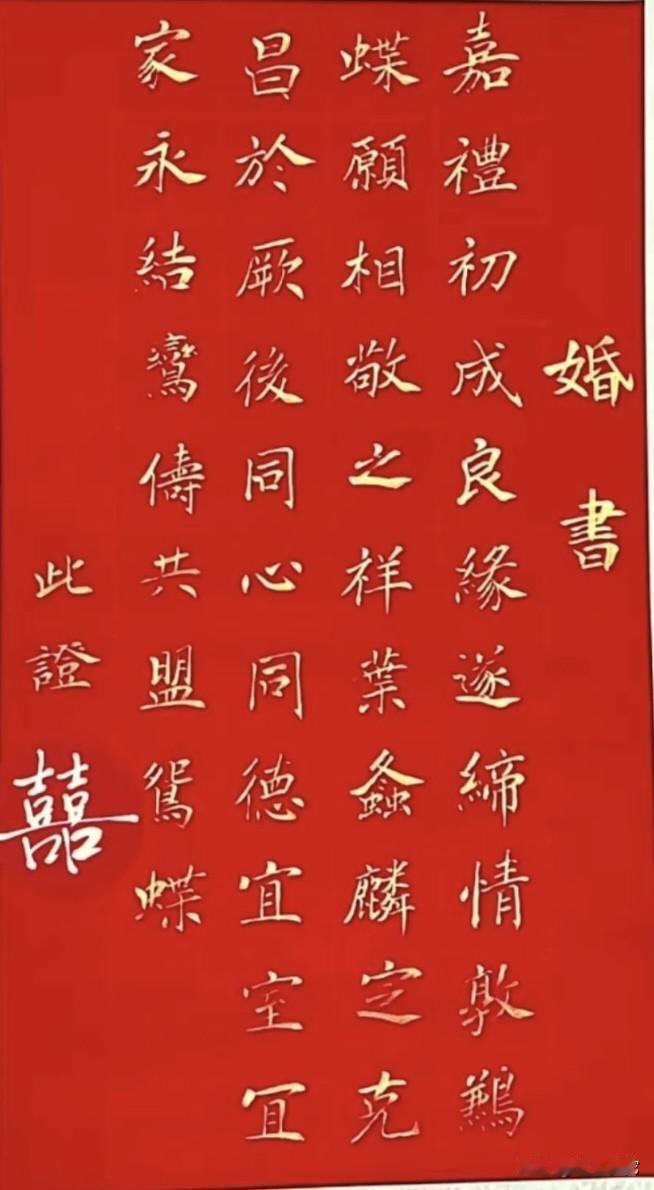 婚書
嘉禮初成良緣遂締情敦鶼
蝶願相敬之祥葉螽麟定克
昌於厥後同心同德宜室宜
家永結鸞儔共盟鴛蝶
此證
囍